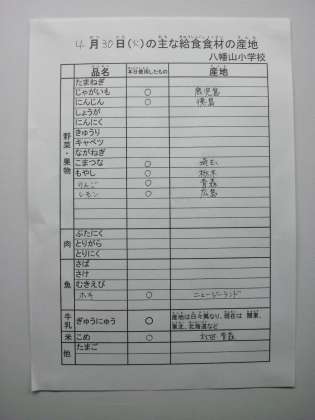 4月30日(火)の主な給食食材の産地
八幡山小学校
品名 本日使用したもの 産地
野菜・果物
たまねぎ
じゃがいも ○ 鹿児島
にんじん ○ 徳島
しょうが
にんにく
きゅうり
キャベツ
ながねぎ
こまつな ○ 埼玉
もやし ○ 栃木
りんご ○ 青森
レモン ○ 広島
肉
ぶたにく
とりがら
とりにく
魚
さば
さけ
むきえび
ホキ ○ ニュージーランド
牛乳 ぎゅうにゅう ○ 産地は日々異なり、現在は 関東、
東北、北海道など
米 こめ ○ 秋田 青森
他 たまご